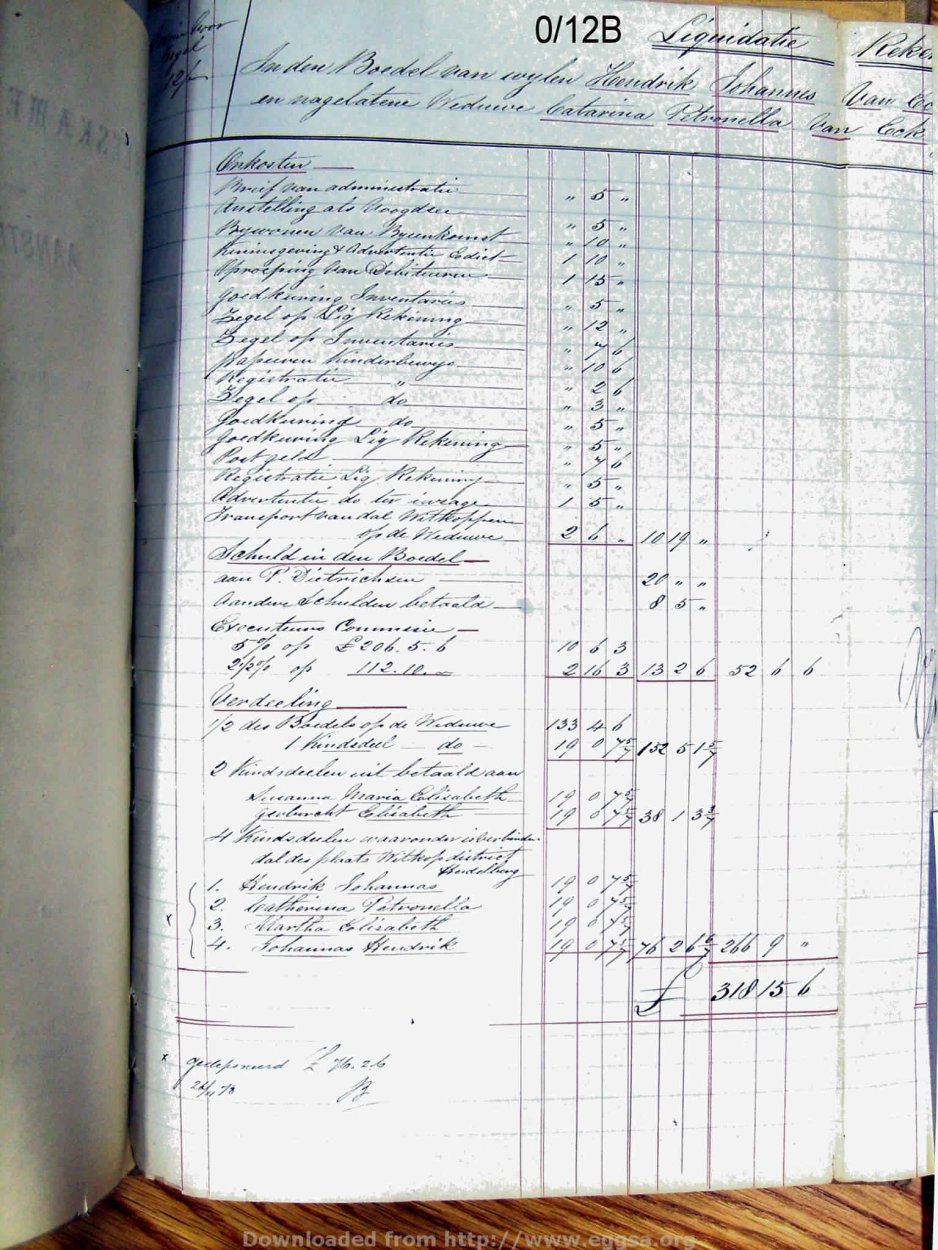 0/12B
Liquidatie Reke
12/-
In den Boedel van wylen Hendrik Johannes Van Ec
en nagelatene Weduwe Catarina Petronella Van Eck
Onkosten
Brief van administratie " 5 "
Anstelling als Voogdes " 5 "
Bywonen van Byeenkomst " 10 "
Kennisgeving & Advertentie Edict 1 10 "
Oproeping van Debiteuren 1 15 "
Goedkeuring Inventaris " 5 "
Zegel op Liq Rekening " 12 "
Zegel op Inventaris " 7 6
Kinderbewys " 10 6
Registratie " " 2 6
Zegel op do " 3 "
Goedkeuring do " 5 "
Goedkeuring Liq Rekening " 5 "
Post geld " 7 6
Registratie Liq Rekening " 5 "
Advertentie do ter inzage 1 5 "
Transport van dal Witkoppen
op de Weduwe 2 6 " 10 19 "
Schuld in den Boedel
aan P. Dietrichsen 20 " "
Aandere Schulden betaald 8 5 "
Executeurs Commissie
5% op £206. 5. 6 10 6 3
2 1/2% op 112. 10. 2 16 3 13 2 6 52 6 6
Verdeeling
1/2 des Boedels op de Weduwe 133 4 6
1 Kindsdeel - do - 19 0 7 5/7 152 5 1 5/7
2 Kindsdeelen uit betaald aan
Susanna Maria Elisabeth 19 0 7 5/7
Elisabeth 19 0 7 5/7 38 1 3 3/7
4 Kindsdeelen waaronder is verbonden
dal des plaats Witkop district
Heidelberg
1. Hendrik Johannas 19 0 7 5/7
2. Catherina Petronella 19 0 7 5/7
x 3. Martha Elisabeth 19 0 7 5/7
4. Johannas Hendrik 19 0 7 5/7 76 2 6 6/7 266 9 "
£ 318 15 6
x gedeponeerd £ 76. 2. 6
B
Downloaded from http://www.eggsa.org